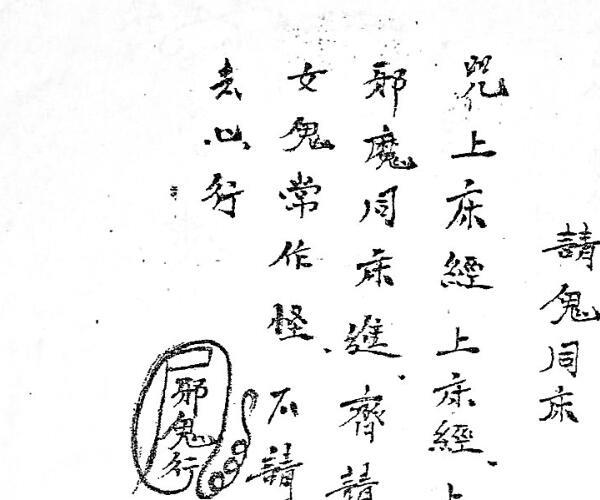 請鬼同床
咒上床經上床經上
邪魔同床進齊請
女鬼常作怪不請
去心行
邪鬼行